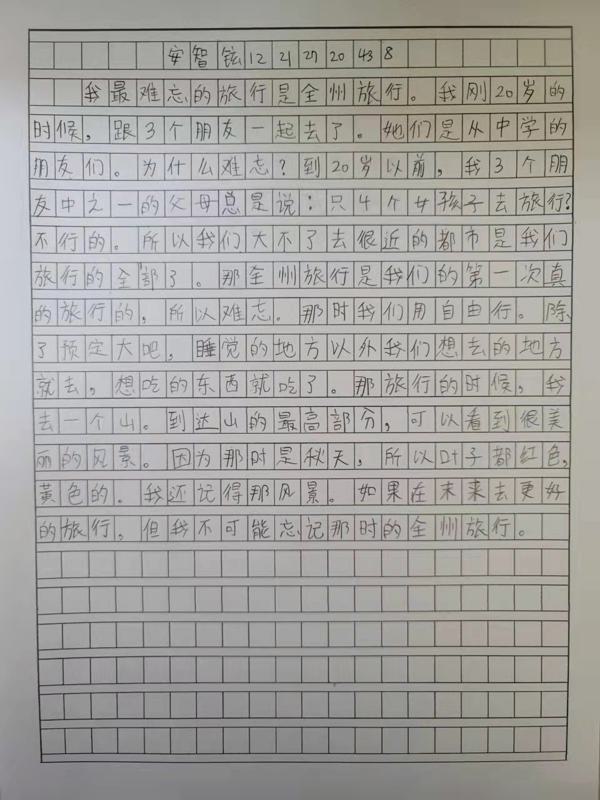 安智铉 12 21 27 20 43 8
我最难忘的旅行是全州旅行。我刚20岁的
时候，跟3个朋友一起去了。她们是从中学的
朋友们。为什么难忘？到20岁以前，我3个朋
友中之一的父母总是说：只4个女孩子去旅行？
不行的。所以我们大不了去很近的都市是我们
旅行的全部了。那全州旅行是我们的第一次真
的旅行的，所以难忘。那时我们用自由行。除
了预定大吧，睡觉的地方以外我们想去的地方
就去，想吃的东西就吃了。那旅行的时候，我
去一个山。到达山的最高部分，可以看到很美
丽的风景。因为那时是秋天，所以叶子都红色，
黄色的。我还记得那风景。如果在未来去更好
的旅行，但我不可能忘记那时的全州旅行。